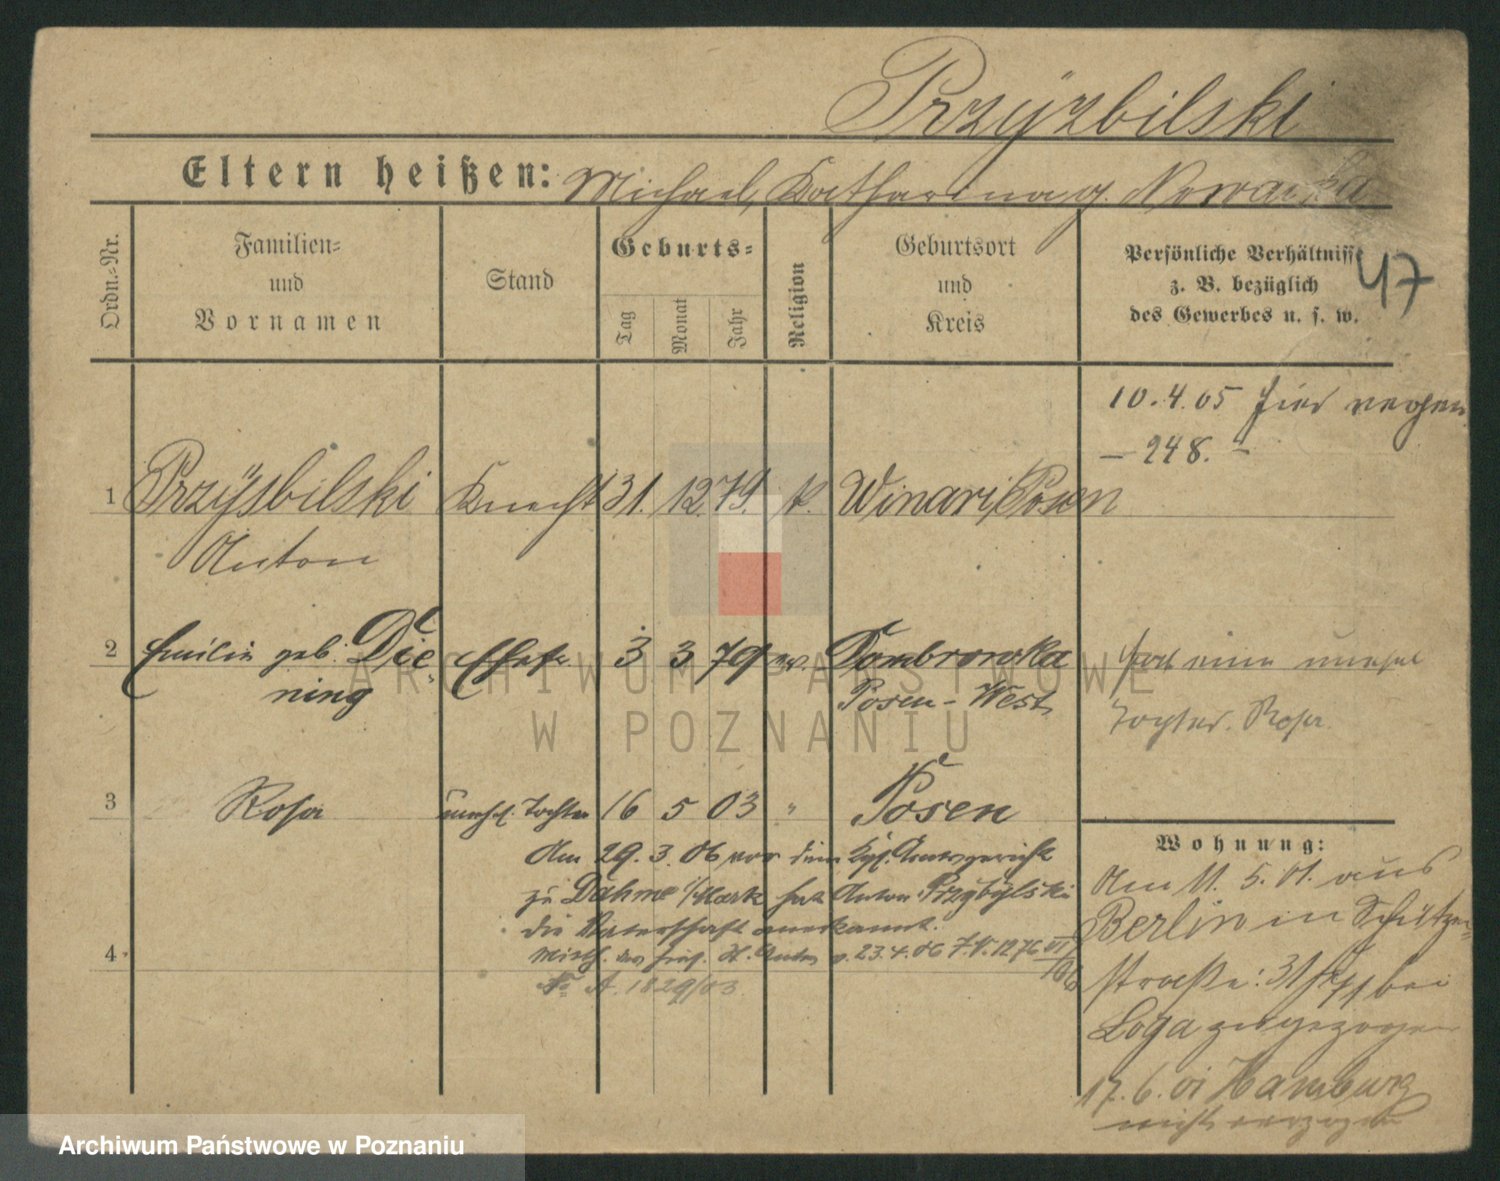 Przÿzbilski
Eltern heißen: Michael, Katharina g. Nowacka
Ordn.-Nr.
Familien-
und
Vornamen
Stand
Geburts-
Tag
Monat
Jahr
Religion
Geburtsort
und
Kreis
Persönliche Verhältnisse
z. B. bezüglich
des Gewerbes u. s. w.
47
10.4.05 hier
– 248. –
1 Przÿsbilski Knecht 31. 12. 79. k. Winari Posen
Anton
2 Emilie geb. Die- Ehefr. 3 3 79 ev. Dombrowka
ning Posen-West
hat eine unehel
Tochter Rosa
3 Rosa unehel. Tochter 16 5 03 " Posen
Am 29.3.06 vor dem Kgl. Amtsgericht
zu Dahme i/Mark hat Anton Przybÿlski
die Vaterschaft anerkannt.
4
Mitth. des v. 23.4.06 J.N. 1276 VI/06
A. 1829/03
Wohnung:
Am 11. 5. 01. aus
Berlin in Schützen-
straße: 31 bei
Loga zugezogen
17.6.01 Hamburg
nicht verzogen
ARCHIWUM PAŃSTWOWE
W POZNANIU
Archiwum Państwowe w Poznaniu